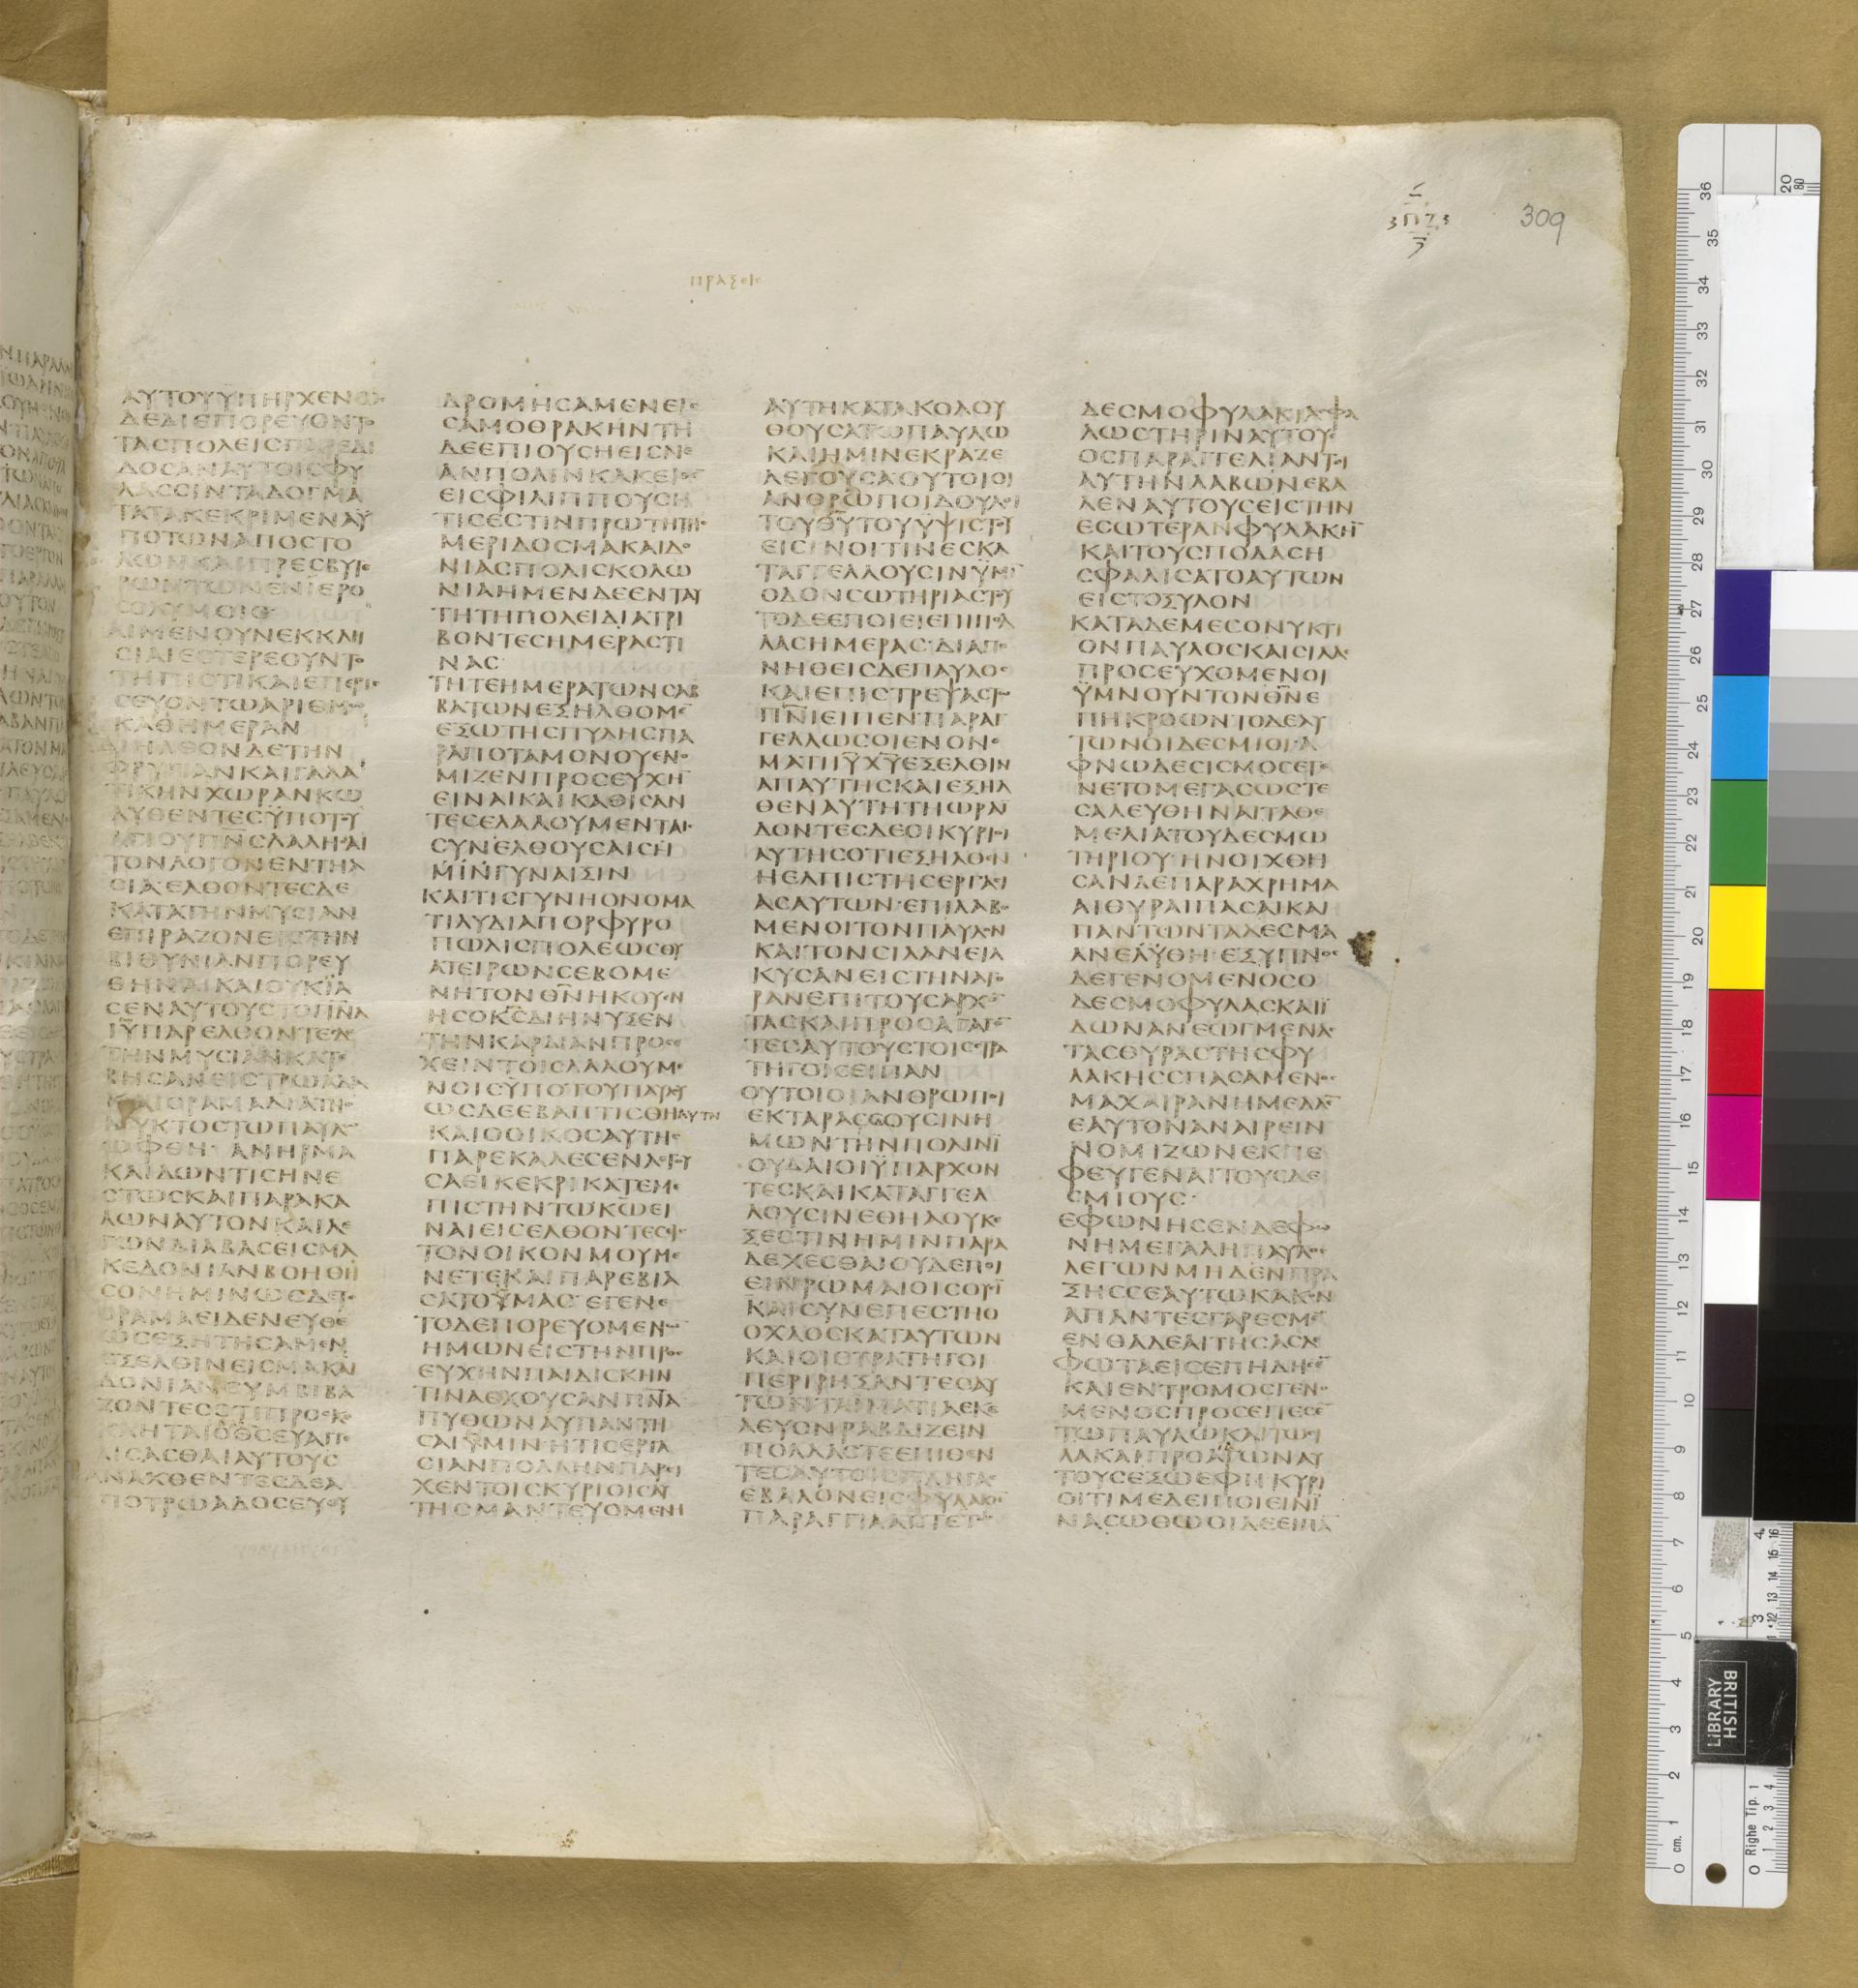 309
ΠΡΑΞΕΙϹ
ΑΥΤΟΥΫΠΗΡΧΕΝΩϹ
ΔΕΔΙΕΠΟΡΕΥΟΝΤΟ
ΤΑϹΠΟΛΕΙϹΠΑΡΕΔΙ
ΔΟϹΑΝΑΥΤΟΙϹΦΥ
ΛΑϹϹΙΝΤΑΔΟΓΜΑ
ΤΑΤΑΚΕΚΡΙΜΕΝΑΫ
ΠΟΤΩΝΑΠΟϹΤΟ
ΛΩΝΚΑΙΠΡΕϹΒΥΤΕ
ΡΩΝΤΩΝΕΝΪΕΡΟ
ϹΟΛΥΜΟΙϹ
ΑΙΜΕΝΟΥΝΕΚΚΛΗ
ϹΙΑΙΕϹΤΕΡΕΟΥΝΤΟ
ΤΗΠΙϹΤΙΚΑΙΕΠΕΡΙϹ
ϹΕΥΟΝΤΩΑΡΙΘΜΩ
ΚΑΘΗΜΕΡΑΝ
ΔΙΗΛΘΟΝΔΕΤΗΝ
ΦΡΥΓΙΑΝΚΑΙΓΑΛΑ
ΤΙΚΗΝΧΩΡΑΝΚΩ
ΛΥΘΕΝΤΕϹΫΠΟΤΟΥ
ΑΓΙΟΥΠΝ̅ϹΛΑΛΗϹΑΙ
ΤΟΝΛΟΓΟΝΕΝΤΗΑ
ϹΙΑΕΛΘΟΝΤΕϹΔΕ
ΚΑΤΑΤΗΝΜΥϹΙΑΝ
ΕΠΙΡΑΖΟΝΕΙϹΤΗΝ
ΒΙΘΥΝΙΑΝΠΟΡΕΥ
ΘΗΝΑΙΚΑΙΟΥΚΪΑ
ϹΕΝΑΥΤΟΥϹΤΟΠΝ̅Α
ΙΥ̅ΠΑΡΕΛΘΟΝΤΕϹΔΕ
ΤΗΝΜΥϹΙΑΝΚΑΤΕ
ΒΗϹΑΝΕΙϹΤΡΩΑΔΑ
ΚΑΙΟΡΑΜΑΔΙΑΤΗϹ
ΝΥΚΤΟϹΤΩΠΑΥΛΩ
ΩΦΘΗ·ΑΝΗΡΜΑ
ΚΑΙΔΩΝΤΙϹΗΝΕ
ϹΤΩϹΚΑΙΠΑΡΑΚΑ
ΛΩΝΑΥΤΟΝΚΑΙΛΕ
ΓΩΝΔΙΑΒΑϹΕΙϹΜΑ
ΚΕΔΟΝΙΑΝΒΟΗΘΗ
ϹΟΝΗΜΙΝΩϹΔΕΤΟ
ΟΡΑΜΑΕΙΔΕΝΕΥΘΕ
ΩϹΕΖΗΤΗϹΑΜΕΝ
ΕΞΕΛΘΙΝΕΙϹΜΑΚΑΙ
ΔΟΝΙΑΝϹΥΜΒΙΒΑ
ΖΟΝΤΕϹΟΤΙΠΡΟϹΚΕ
ΚΛΗΤΑΙΟΘ̅ϹΕΥΑΓΓΕ
ΛΙϹΑϹΘΑΙΑΥΤΟΥϹ
ΑΝΑΧΘΕΝΤΕϹΔΕΑ
ΠΟΤΡΩΑΔΟϹΕΥΘΥ
ΔΡΟΜΗϹΑΜΕΝΕΙϹ
ϹΑΜΟΘΡΑΚΗΝΤΗ
ΔΕΕΠΙΟΥϹΗΕΙϹΝΕ
ΑΝΠΟΛΙΝΚΑΚΕΙΘΕ̅
ΕΙϹΦΙΛΙΠΠΟΥϹΗ
ΤΙϹΕϹΤΙΝΠΡΩΤΗΤΗϹ
ΜΕΡΙΔΟϹΜΑΚΑΙΔΟ
ΝΙΑϹΠΟΛΙϹΚΟΛΩ
ΝΙΑΗΜΕΝΔΕΕΝΤΑΥ
ΤΗΤΗΠΟΛΕΙΔΙΑΤΡΙ
ΒΟΝΤΕϹΗΜΕΡΑϹΤΙ
ΝΑϹ
ΤΗΤΕΗΜΕΡΑΤΩΝϹΑΒ
ΒΑΤΩΝΕΞΗΛΘΟΜΕ̅
ΕΞΩΤΗϹΠΥΛΗϹΠΑ
ΡΑΠΟΤΑΜΟΝΟΥΕΝΟ
ΜΙΖΕΝΠΡΟϹΕΥΧΗ̅
ΕΙΝΑΙΚΑΙΚΑΘΙϹΑΝ
ΤΕϹΕΛΑΛΟΥΜΕΝΤΑΙϹ
ϹΥΝΕΛΘΟΥϹΑΙϹΗ
ΜΙΝΓΥΝΑΙΞΙΝ
ΚΑΙΤΙϹΓΥΝΗΟΝΟΜΑ
ΤΙΛΥΔΙΑΠΟΡΦΥΡΟ
ΠΩΛΙϹΠΟΛΕΩϹΘΥ
ΑΤΕΙΡΩΝϹΕΒΟΜΕ
ΝΗΤΟΝΘ̅ΝΗΚΟΥϹΕΝ
ΗϹΟΚ̅ϹΔΙΗΝΥΞΕΝ
ΤΗΝΚΑΡΔΙΑΝΠΡΟϹΕ
ΧΕΙΝΤΟΙϹΛΑΛΟΥΜΕ
ΝΟΙϹΫΠΟΤΟΥΠΑΥΛΟΥ
ΩϹΔΕΕΒΑΠΤΙϹΘΗΑΥΤΗ
ΚΑΙΟΟΙΚΟϹΑΥΤΗϹ
ΠΑΡΕΚΑΛΕϹΕΝΛΕΓΟΥ
ϹΑΕΙΚΕΚΡΙΚΑΤΕΜΕ
ΠΙϹΤΗΝΤΩΚΩΕΙ
ΝΑΙΕΙϹΕΛΘΟΝΤΕϹΕΙϹ
ΤΟΝΟΙΚΟΝΜΟΥΜΕ
ΝΕΤΕΚΑΙΠΑΡΕΒΙΑ
ϹΑΤΟΥΜΑϹΕΓΕΝΕ
ΤΟΔΕΠΟΡΕΥΟΜΕΝΩ
ΗΜΩΝΕΙϹΤΗΝΠΡΟϹ
ΕΥΧΗΝΠΑΙΔΙϹΚΗΝ
ΤΙΝΑΕΧΟΥϹΑΝΠΝ̅Α
ΠΥΘΩΝΑΫΠΑΝΤΗ
ϹΑΙΫΜΙΝΗΤΙϹΕΡΓΑ
ϹΙΑΝΠΟΛΛΗΝΠΑΡΕΙ
ΧΕΝΤΟΙϹΚΥΡΙΟΙϹΑΥ
ΤΗϹΜΑΝΤΕΥΟΜΕΝΗ
ΑΥΤΗΚΑΤΑΚΟΛΟΥ
ΘΟΥϹΑΤΩΠΑΥΛΩ
ΚΑΙΗΜΙΝΕΚΡΑΖΕ
ΛΕΓΟΥϹΑΟΥΤΟΙΟΙ
ΑΝΘΡΩΠΟΙΔΟΥΛΟΙ
ΤΟΥΘ̅ΥΤΟΥΥΨΙϹΤΟΥ
ΕΙϹΙΝΟΙΤΙΝΕϹΚΑ
ΤΑΓΓΕΛΛΟΥϹΙΝΫΜΙ̅
ΟΔΟΝϹΩΤΗΡΙΑϹΤΟΥ
ΤΟΔΕΕΠΟΙΕΙΕΠΙΠΟΛ
ΛΑϹΗΜΕΡΑϹ·ΔΙΑΠΟ
ΝΗΘΕΙϹΔΕΠΑΥΛΟϹ
ΚΑΙΕΠΙϹΤΡΕΨΑϹΤΩ
ΠΝ̅ΙΕΙΠΕΝΠΑΡΑΓ
ΓΕΛΛΩϹΟΙΕΝΟΝΟ
ΜΑΤΙΙ̅ΥΧ̅ΥΕΞΕΛΘΙΝ
ΑΠΑΥΤΗϹΚΑΙΕΞΗΛ
ΘΕΝΑΥΤΗΤΗΩΡΑΪ
ΔΟΝΤΕϹΔΕΟΙΚΥΡΙΟΙ
ΑΥΤΗϹΟΤΙΕΞΗΛΘΕΝ
ΗΕΛΠΙϹΤΗϹΕΡΓΑϹΙ
ΑϹΑΥΤΩΝ·ΕΠΙΛΑΒΟ
ΜΕΝΟΙΤΟΝΠΑΥΛΟΝ
ΚΑΙΤΟΝϹΙΛΑΝΕΙΛ
ΚΥϹΑΝΕΙϹΤΗΝΑΓΟ
ΡΑΝΕΠΙΤΟΥϹΑΡΧΟ̅
ΤΑϹΚΑΙΠΡΟϹΑΓΑΓΟ̅
ΤΕϹΑΥΤΟΥϹΤΟΙϹϹΤΡΑ
ΤΗΓΟΙϹΕΙΠΑΝ
ΟΥΤΟΙΟΙΑΝΘΡΩΠΟΙ
ΕΚΤΑΡΑϹϹΟΥϹΙΝΗ
ΜΩΝΤΗΝΠΟΛΙΝΪ
ΟΥΔΑΙΟΙΫΠΑΡΧΟΝ
ΤΕϹΚΑΙΚΑΤΑΓΓΕΛ
ΛΟΥϹΙΝΕΘΗΑΟΥΚΕ
ΞΕϹΤΙΝΗΜΙΝΠΑΡΑ
ΔΕΧΕϹΘΑΙΟΥΔΕΠΟΙ
ΕΙΝΡΩΜΑΙΟΙϹΟΥϹΙ̅
ΚΑΙϹΥΝΕΠΕϹΤΗΟ
ΟΧΛΟϹΚΑΤΑΥΤΩΝ
ΚΑΙΟΙϹΤΡΑΤΗΓΟΙ
ΠΕΡΙΡΗΞΑΝΤΕϹΑΥ
ΤΩΝΤΑΪΜΑΤΙΑΕΚΕ
ΛΕΥΟΝΡΑΒΔΙΖΕΙΝ
ΠΟΛΛΑϹΤΕΕΠΙΘΕΝ
ΤΕϹΑΥΤΟΙϹΠΛΗΓΑϹ
ΕΒΑΛΟΝΕΙϹΦΥΛΑΚΗ̅
ΠΑΡΑΓΓΙΛΑΝΤΕϹΤΩ
ΔΕϹΜΟΦΥΛΑΚΙΑϹΦΑ
ΛΩϹΤΗΡΙΝΑΥΤΟΥϹ
ΟϹΠΑΡΑΓΓΕΛΙΑΝΤΟΙ
ΑΥΤΗΝΛΑΒΩΝΕΒΑ
ΛΕΝΑΥΤΟΥϹΕΙϹΤΗΝ
ΕϹΩΤΕΡΑΝΦΥΛΑΚΗ̅
ΚΑΙΤΟΥϹΠΟΔΑϹΗ
ϹΦΑΛΙϹΑΤΟΑΥΤΩΝ
ΕΙϹΤΟΞΥΛΟΝ
ΚΑΤΑΔΕΜΕϹΟΝΥΚΤΙ
ΟΝΠΑΥΛΟϹΚΑΙϹΙΛΑϹ
ΠΡΟϹΕΥΧΟΜΕΝΟΙ
ΫΜΝΟΥΝΤΟΝΘ̅ΝΕ
ΠΗΚΡΟΩΝΤΟΔΕΑΥ
ΤΩΝΟΙΔΕϹΜΙΟΙ·Α
ΦΝΩΔΕϹΙϹΜΟϹΕΓΕ
ΝΕΤΟΜΕΓΑϹΩϹΤΕ
ϹΑΛΕΥΘΗΝΑΙΤΑΘΕ
ΜΕΛΙΑΤΟΥΔΕϹΜΩ
ΤΗΡΙΟΥ·ΗΝΟΙΧΘΗ
ϹΑΝΔΕΠΑΡΑΧΡΗΜΑ
ΑΙΘΥΡΑΙΠΑϹΑΙΚΑΙ
ΠΑΝΤΩΝΤΑΔΕϹΜΑ
ΑΝΕΛΥΘΗ·ΕΞΥΠΝΟϹ
ΔΕΓΕΝΟΜΕΝΟϹΟ
ΔΕϹΜΟΦΥΛΑΞΚΑΙΪ
ΔΩΝΑΝΕΩΓΜΕΝΑϹ
ΤΑϹΘΥΡΑϹΤΗϹΦΥ
ΛΑΚΗϹϹΠΑϹΑΜΕΝΟϹ
ΜΑΧΑΙΡΑΝΗΜΕΛΛΕ̅
ΕΑΥΤΟΝΑΝΑΙΡΕΙΝ
ΝΟΜΙΖΩΝΕΚΠΕ
ΦΕΥΓΕΝΑΙΤΟΥϹΔΕ
ϹΜΙΟΥϹ·
ΕΦΩΝΗϹΕΝΔΕΦΩ
ΝΗΜΕΓΑΛΗΠΑΥΛΟϹ
ΛΕΓΩΝΜΗΔΕΝΠΡΑ
ΞΗϹϹΕΑΥΤΩΚΑΚΟΝ
ΑΠΑΝΤΕϹΓΑΡΕϹΜΕ̅
ΕΝΘΑΔΕΑΙΤΗϹΑϹΔΕ
ΦΩΤΑΕΙϹΕΠΗΔΗϹΕ̅
ΚΑΙΕΝΤΡΟΜΟϹΓΕΝΟ
ΜΕΝΟϹΠΡΟϹΕΠΕϹΕ̅
ΤΩΠΑΥΛΩΚΑΙΤΩϹΙ
ΛΑΚΑΙΠΡΟΑΓΩΝΑΥ
ΤΟΥϹΕΞΩΕΦΗΚΥΡΙ
ΟΙΤΙΜΕΔΕΙΠΟΙΕΙΝΪ
ΝΑϹΩΘΩΟΙΔΕΕΙΠΑ̅
BRITISH
LIBRARY